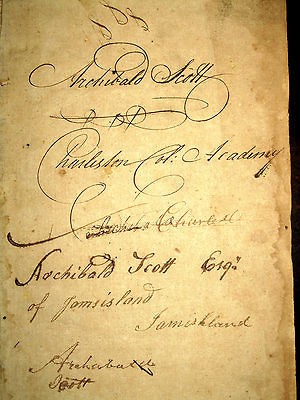 Archibald Scott
of
Charleston Col: Academy
Archibald Scott Esqr
of Jamsisland
Jamisland
Archabald
Scott